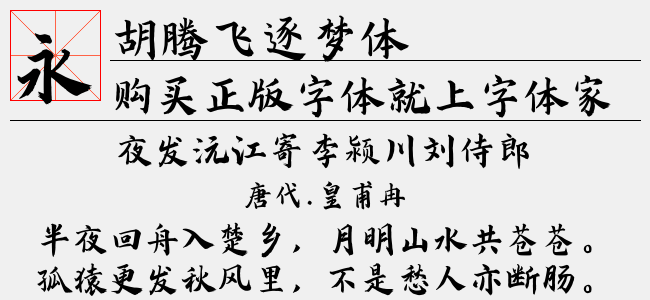 永
胡腾飞逐梦体
购买正版字体就上字体家
夜发沅江寄李颍川刘侍郎
唐代.皇甫冉
半夜回舟入楚乡，月明山水共苍苍。
孤猿更发秋风里，不是愁人亦断肠。